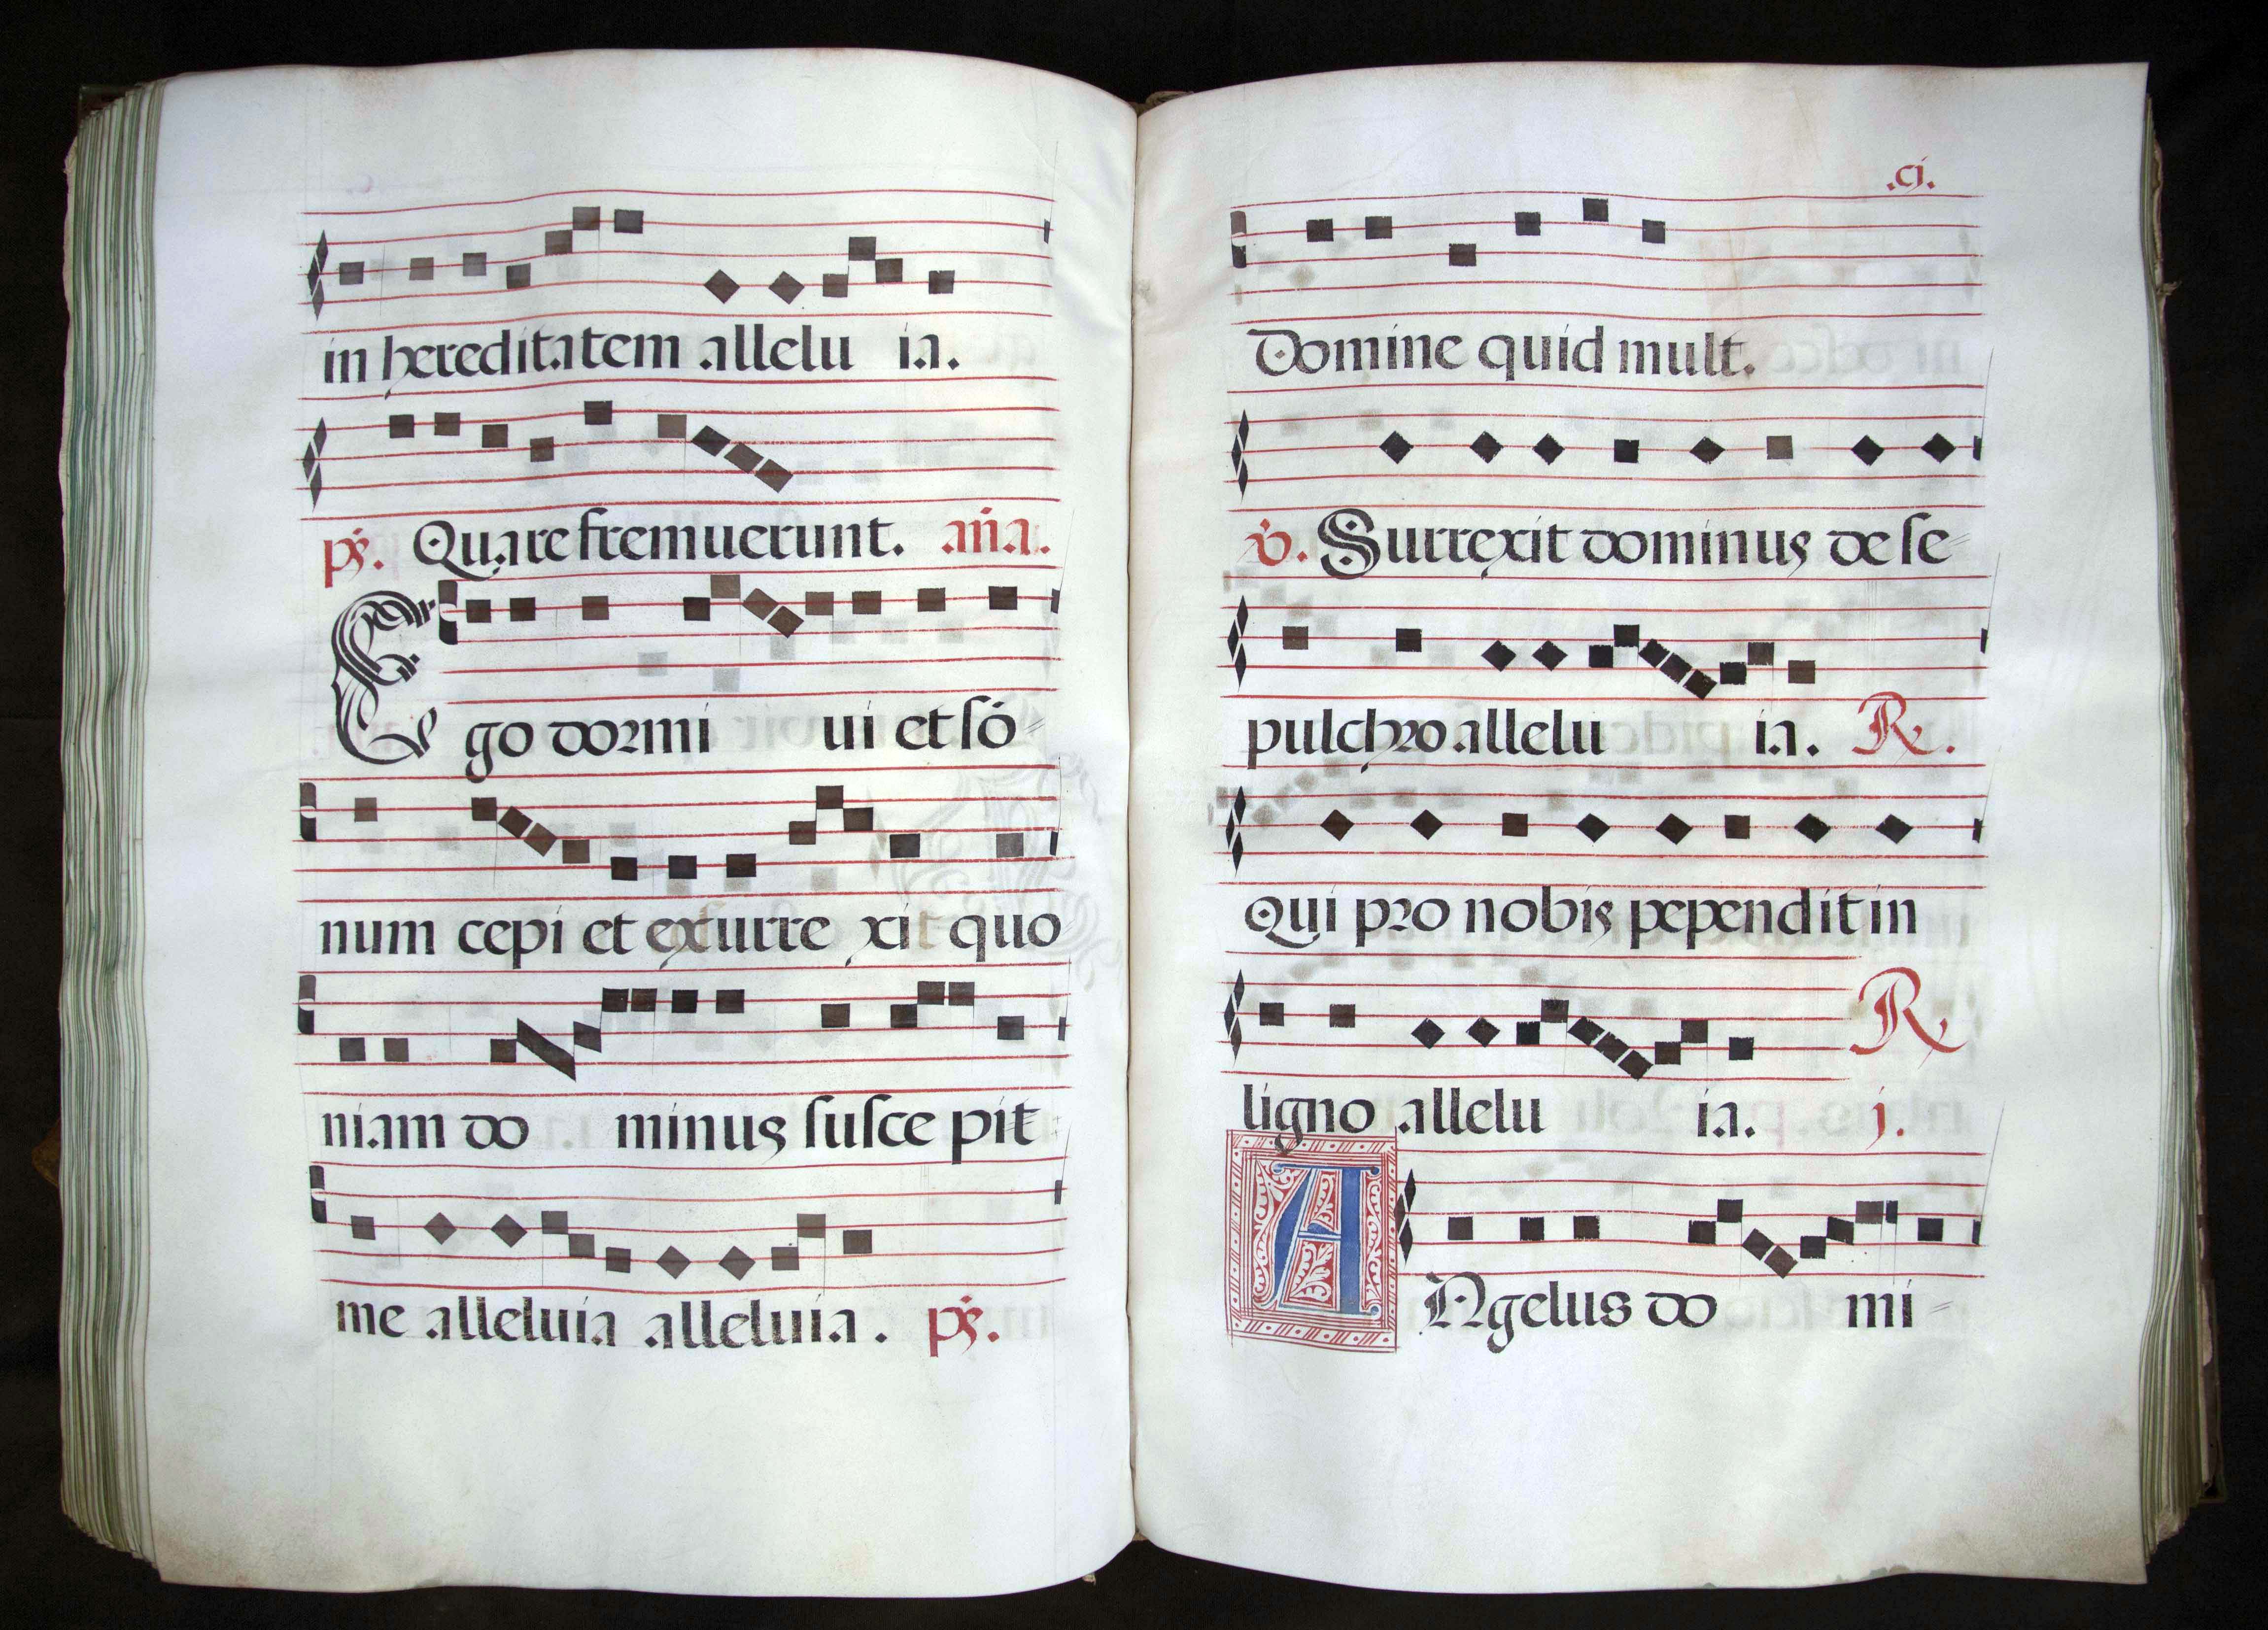 in hereditatem allelu ia.
ps. Quare fremuerunt. aña.
Ego dormi ui et sō
num cepi et exsurre xit quo
niam do minus susce pit
me alleluia alleluia. ps.
.cj.
Domine quid mult.
v. Surrexit dominus de se
pulchro allelu ia. R.
Qui pro nobis pependit in
ligno allelu ia. R. j.
ANgelus do mi